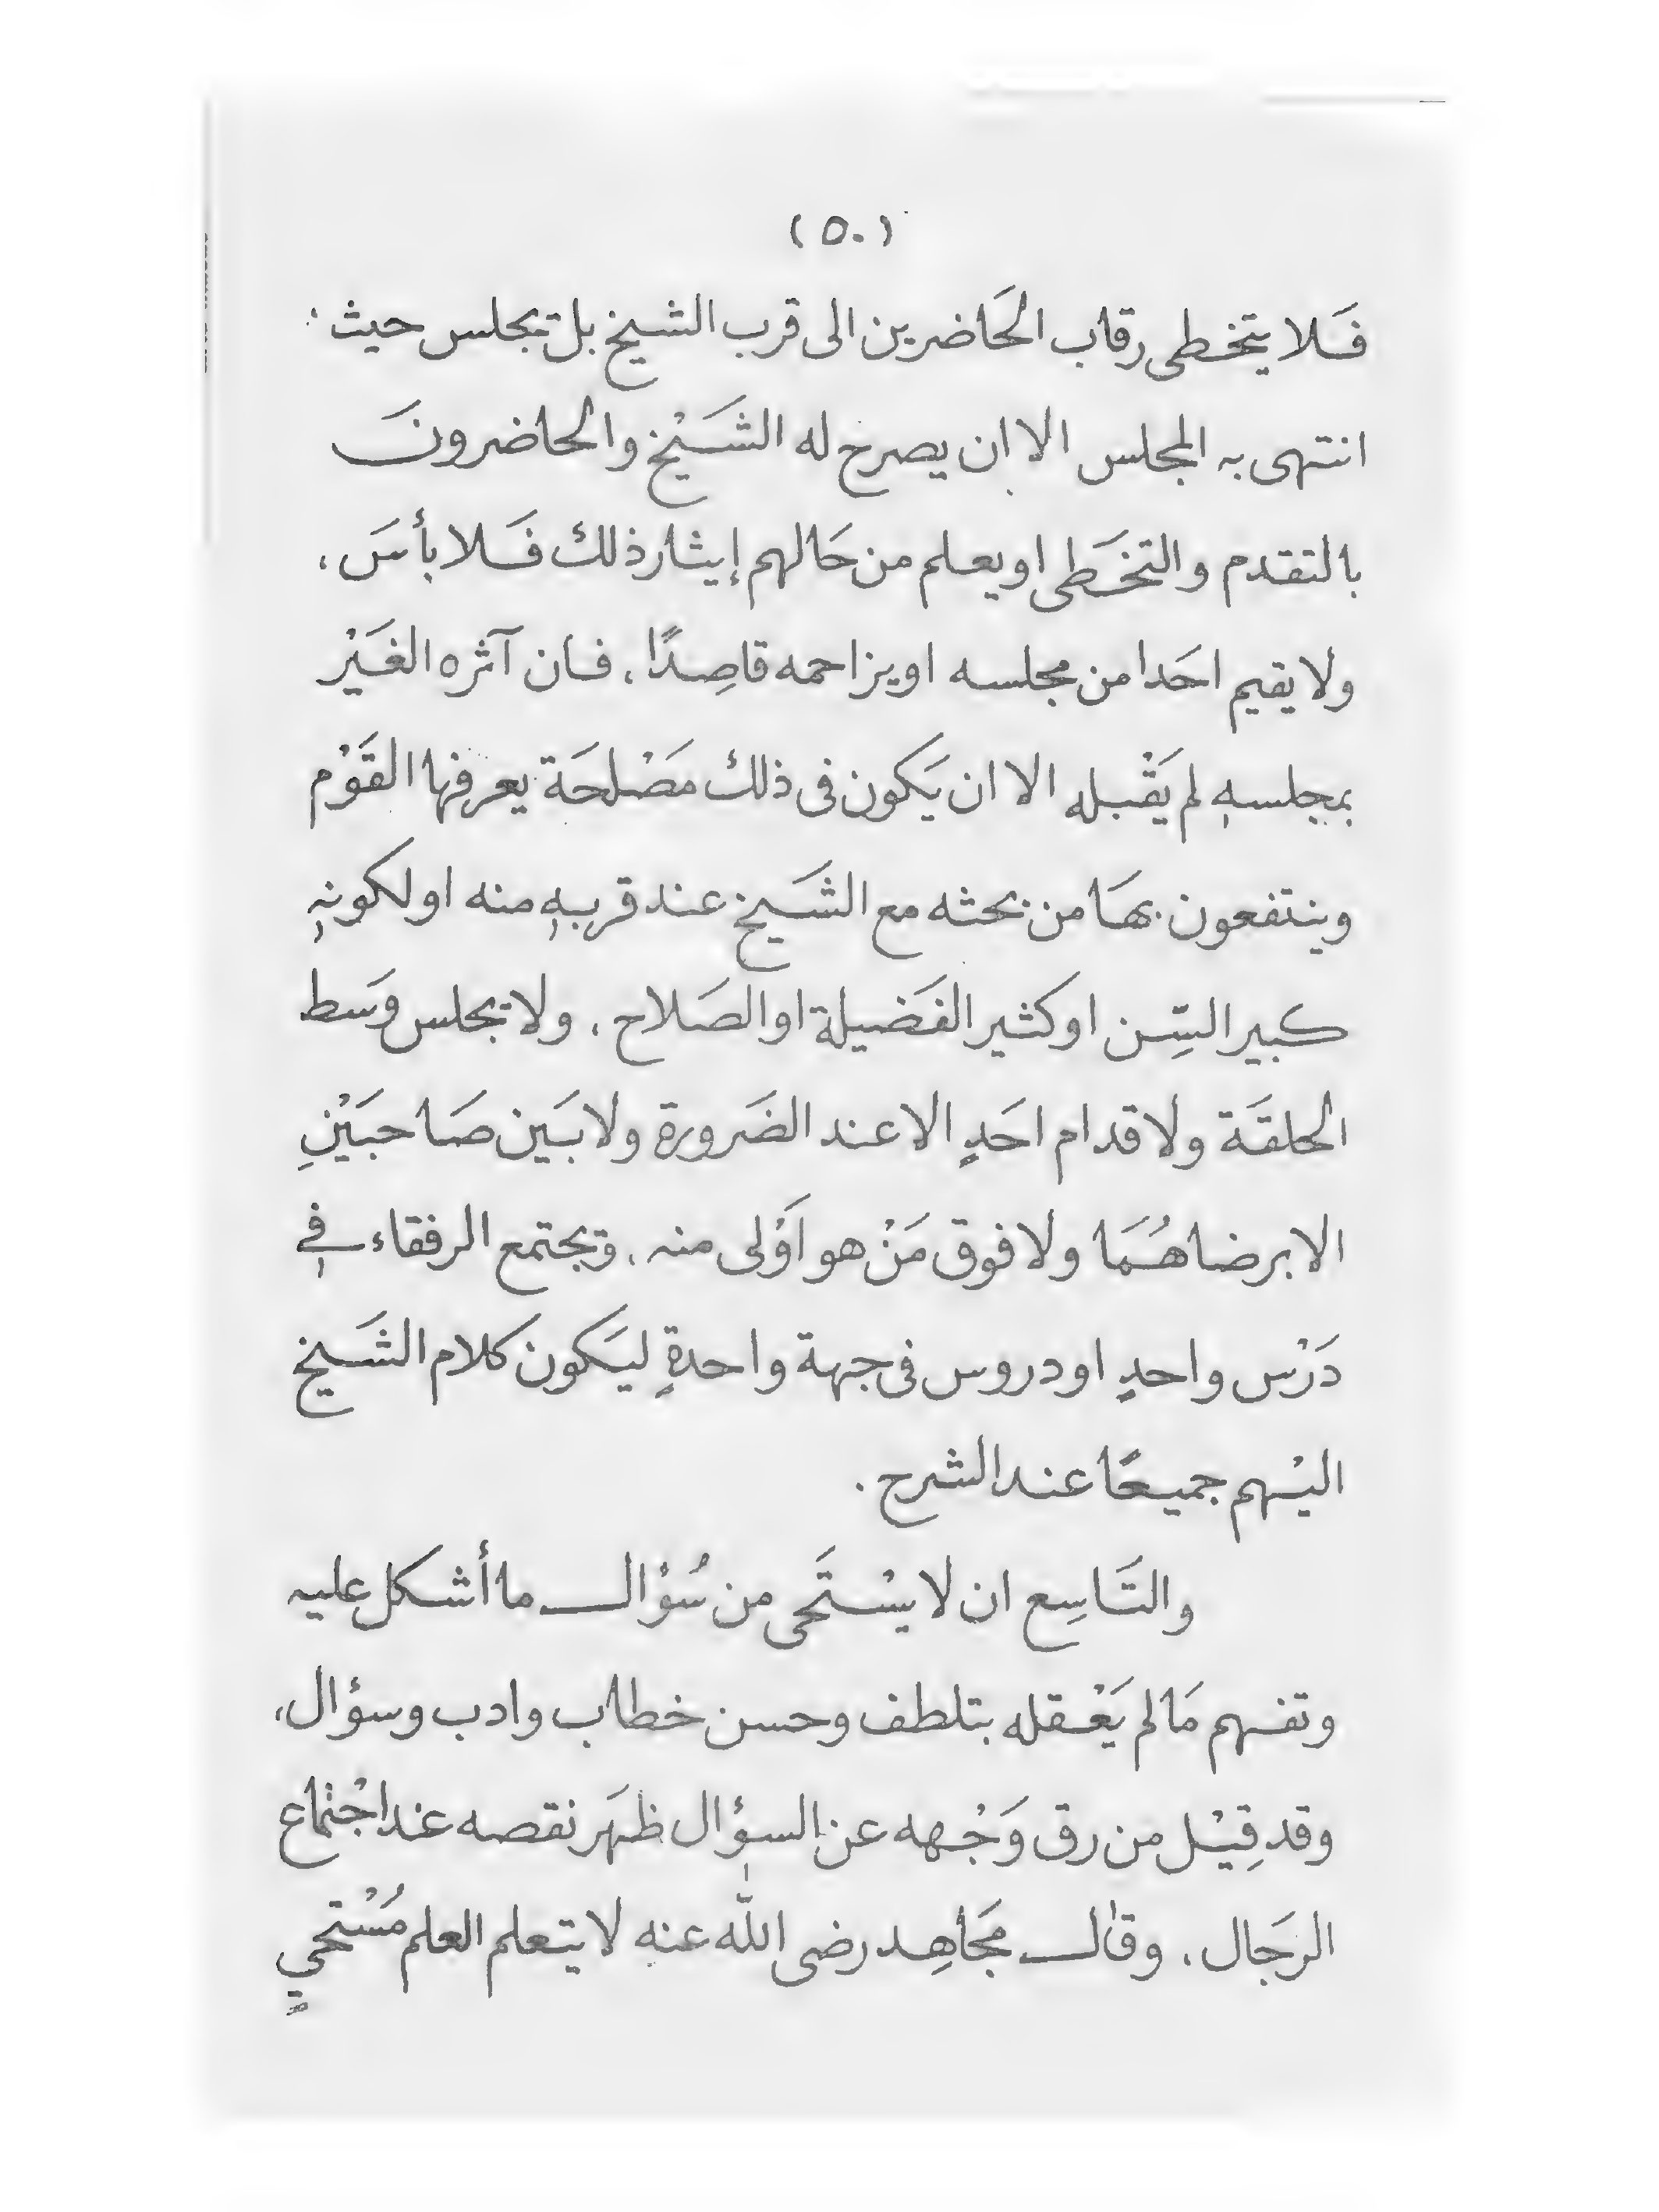 (٥٠)
فَلا يتخطى رقاب الحَاضرين الى قرب الشيخ بل يجلس حيث
انتهى به المجلس الا ان يصرح له الشَيْخ والحاضرونَ
بالتقدم والتخَطى او يعلم من حَالهم إيثار ذلك فَلا بأسَ ،
ولا يقيم احَدا من مجلسه او يزاحمه قاصِدًا ، فان آثره الغَيْر
بمجلسهٖ لم يَقْبله الا ان يَكون فى ذلك مَصْلحَة يعرفها القَوْم
وينتفعون بهَا من بحثه مع الشَيخ عند قربهٖ منه او لكونهٖ
كبير السِّن او كثير الفَضيلة او الصَلاح ، ولا يجلس وَسط
الحلقَة ولا قدام احَدٍ الا عند الضَرورة ولا بَين صَاحبَيْنِ
الا برضاهُمَا ولا فوق مَنْ هو اَوْلى منه ، ويجتمع الرفقاء فى
دَرْس واحدٍ او دروس فى جهة واحدةٍ ليَكون كلام الشَيخ
اليْهم جميعًا عند الشرح .
والتَاسِع ان لا يسْتَحى من سُؤال ما أشكل عليه
وتفهم مَا لم يَعْقله بتلطف وحسن خطاب وادب وسؤال ،
وقد قِيْل من رق وَجْهه عن السؤال ظهَر نقصه عند اجْتماع
الرجَال ، وقال مجَاهِد رضى الله عنه لا يتعلم العلم مُسْتحيٍ